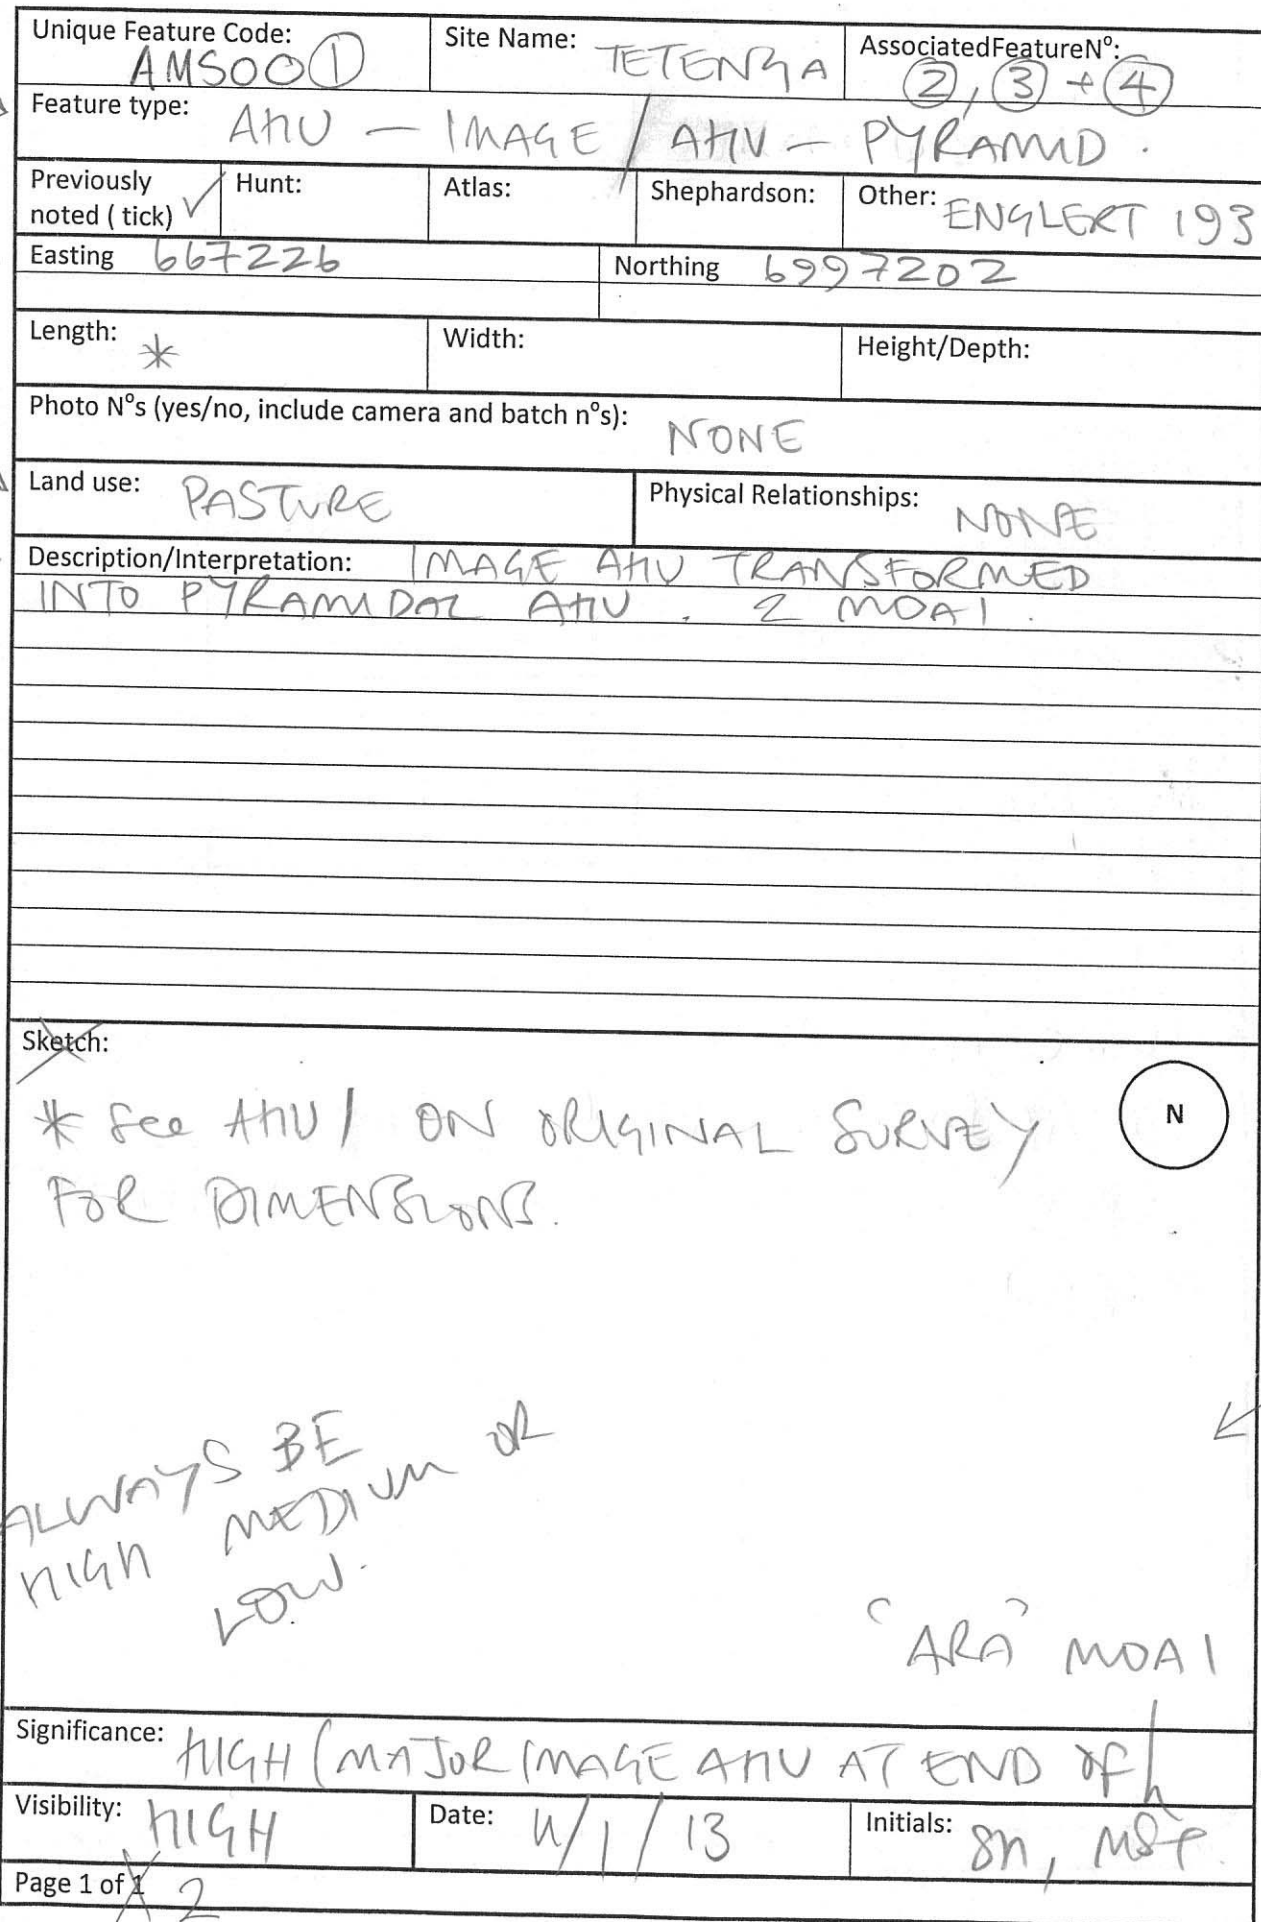 Unique Feature Code: AMS00①
Site Name: TETENGA
AssociatedFeatureNº: ②, ③ + ④
Feature type: AHU – IMAGE / AHU – PYRAMID.
Previously noted ( tick) ✓
Hunt:
Atlas:
Shephardson:
Other: ENGLERT 193
Easting 667226
Northing 6997202
Length: *
Width:
Height/Depth:
Photo Nºs (yes/no, include camera and batch nºs): NONE
Land use: PASTURE
Physical Relationships: NONE
Description/Interpretation: IMAGE AHU TRANSFORMED
INTO PYRAMIDAL AHU. 2 MOAI.
Sketch:
N
* See AHU 1 ON ORIGINAL SURVEY
FOR DIMENSIONS.
ALWAYS BE
HIGH MEDIUM OR
LOW.
"ARA" MOAI
Significance: HIGH (MAJOR IMAGE AHU AT END OF
Visibility: HIGH
Date: /1/13
Initials:
Page 1 of 1 2